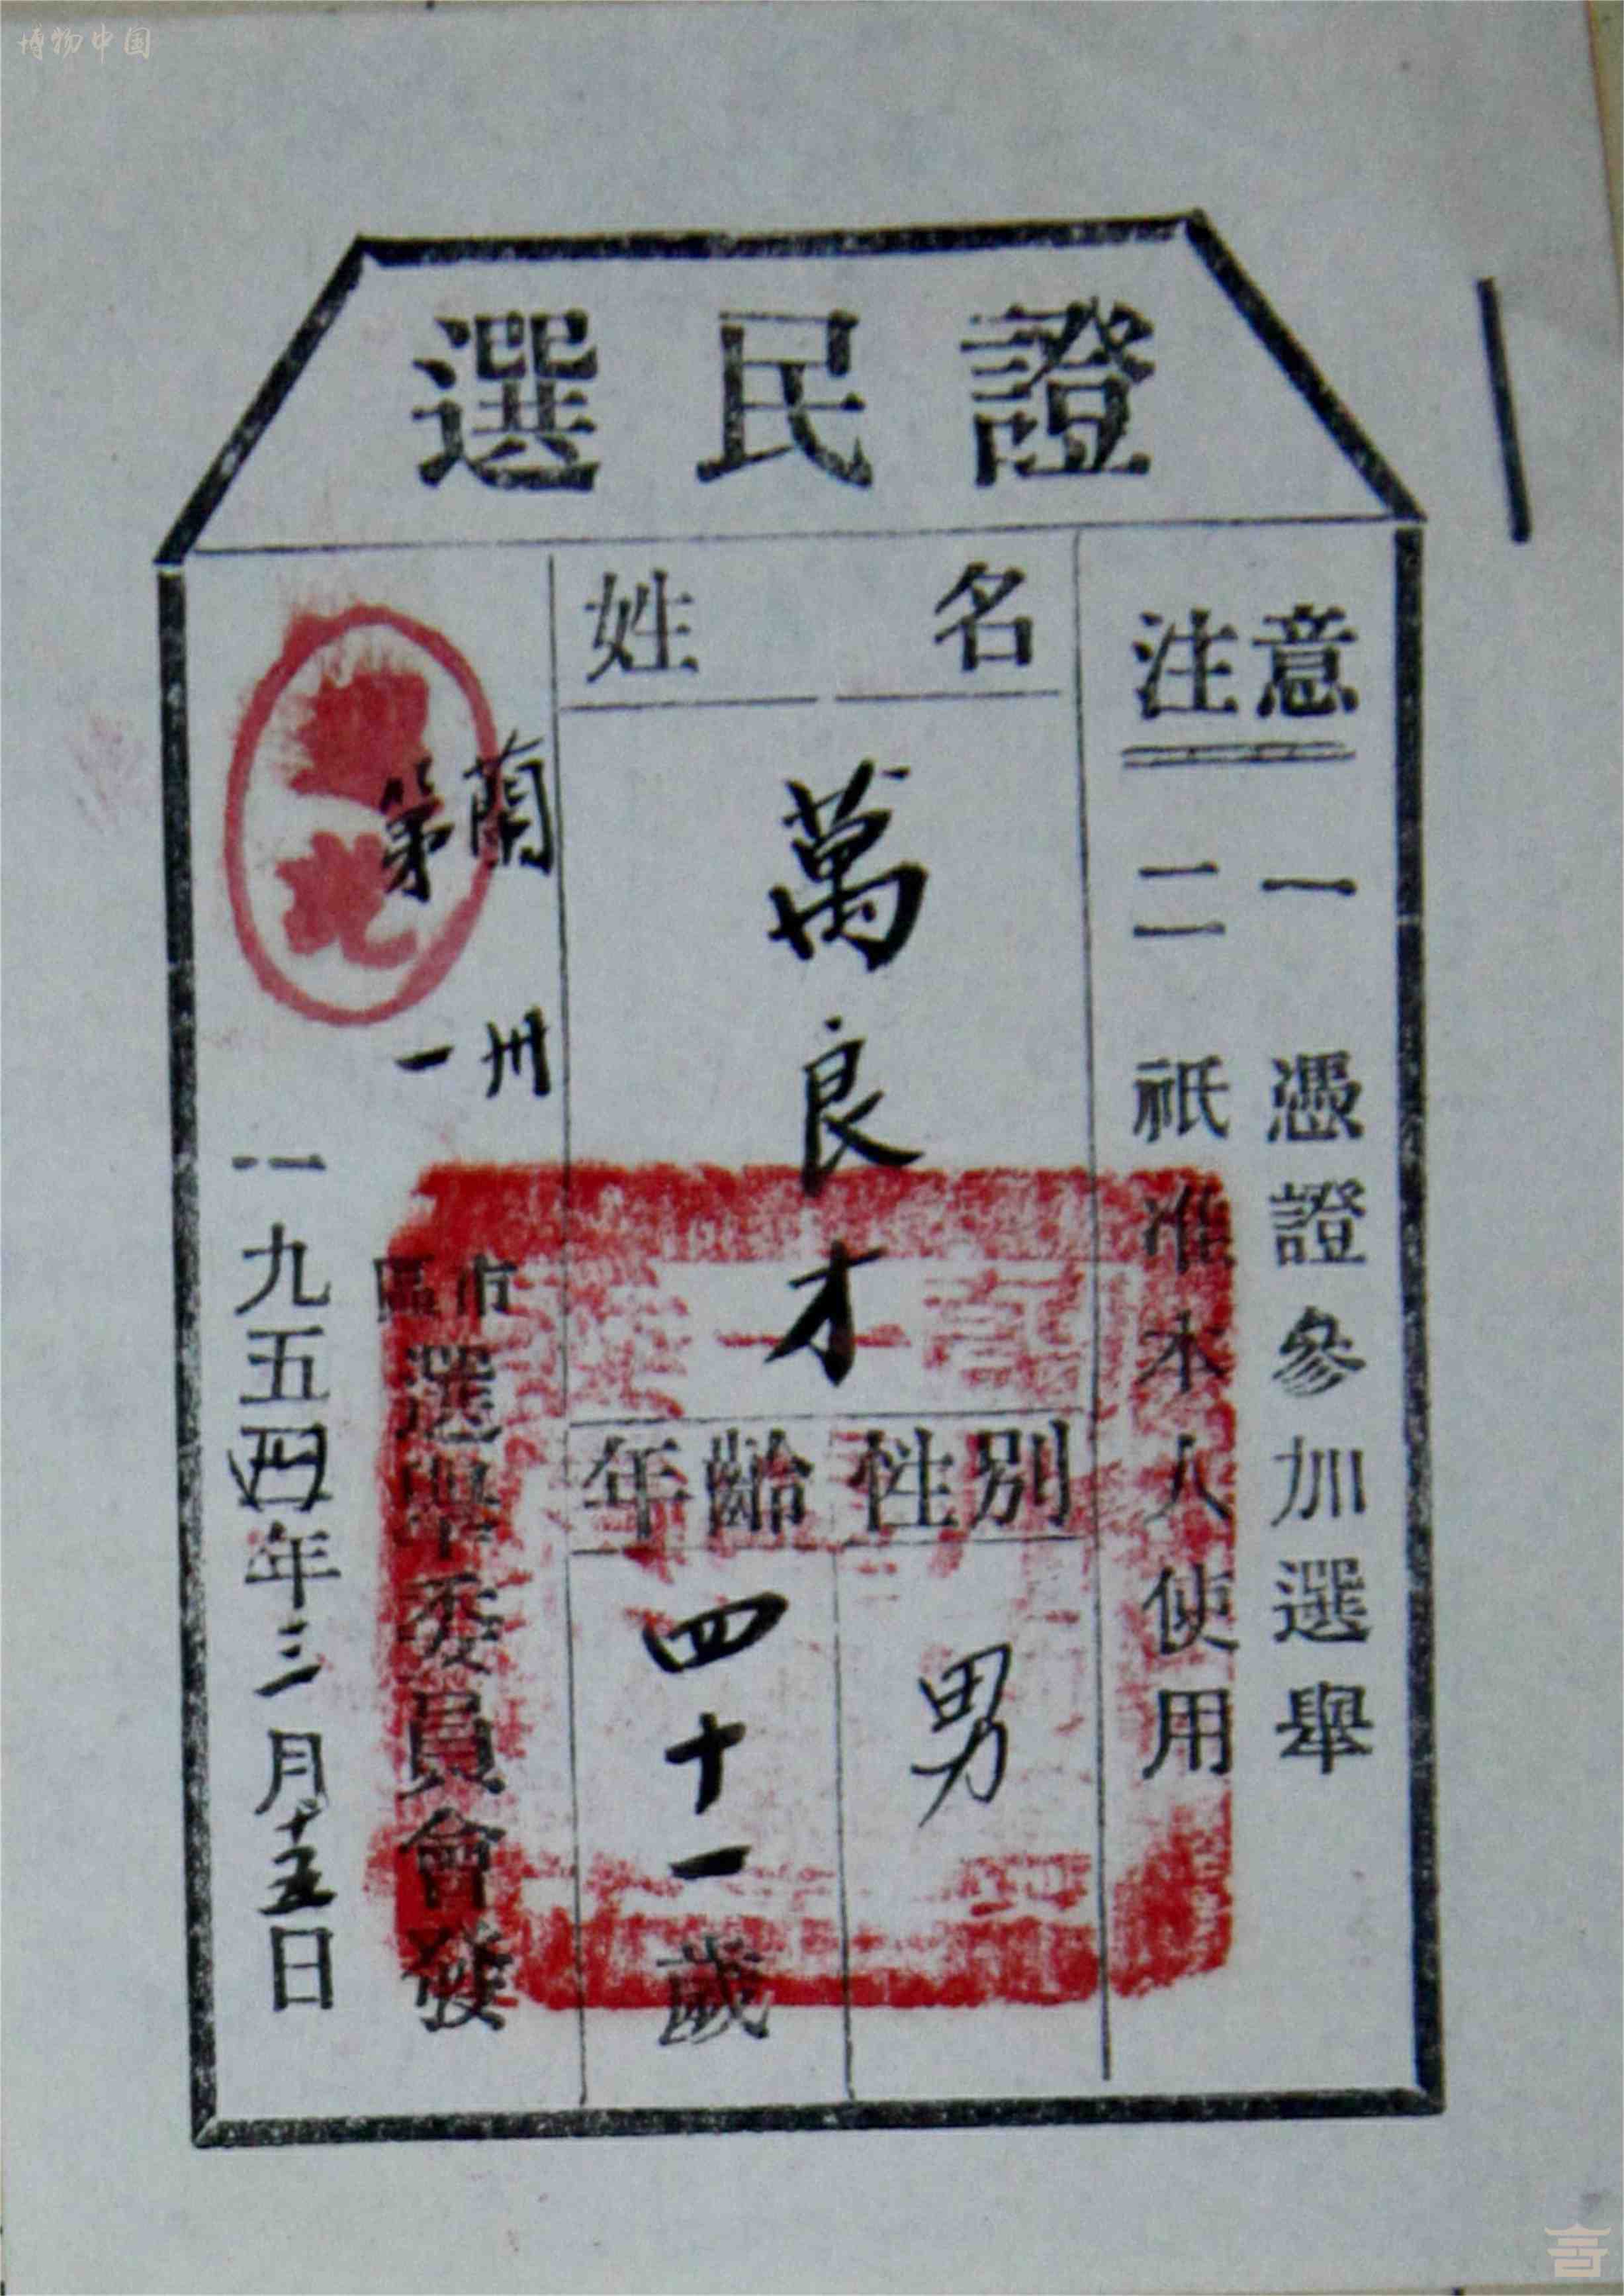 博物中国
選民證
注意
一 憑證參加選舉
二 祇准本人使用
姓名
萬良才
性別
男
年齡
四十一歲
蘭州市
第一區
選舉委員會發
一九五四年三月十五日